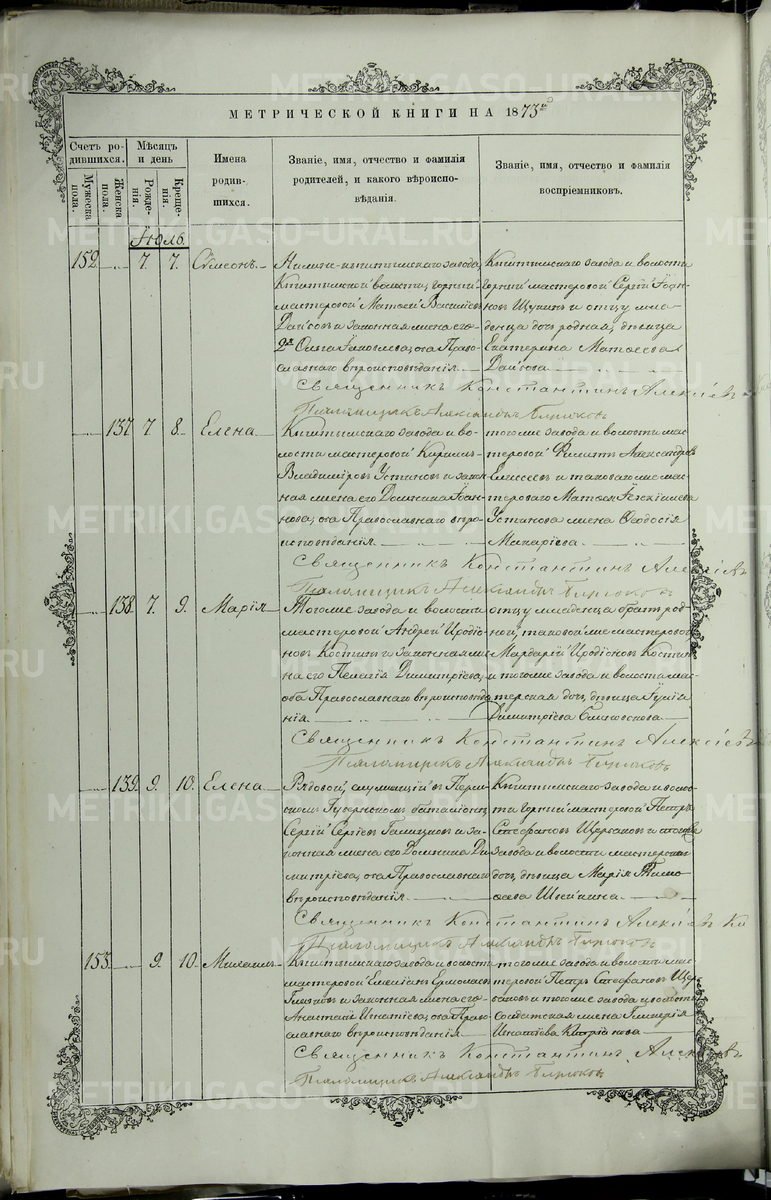 МЕТРИЧЕСКОЙ КНИГИ НА 1873й
Счетъ родившихся.
Мѣсяцъ и день
Имена родившихся.
Званіе, имя, отчество и фамилія родителей, и какого вѣроисповѣданія.
Званіе, имя, отчество и фамилія воспріемниковъ.
Мужеска пола.
Женска пола.
Рожденія.
Крещенія.
Іюль.
152. 7. 7. Сѵмеонъ.
Нижне-кыштымскаго завода,
Кыштымской волости, горный
мастеровой Матѳей Василіевъ
и законная жена его
2я Ольга Іаковлева; оба Право-
славнаго вѣроисповѣданія.
Кыштымскаго завода и волости
горный мастеровой Сергій Іоан-
новъ Щукинъ и отцу мла-
денца дочь родная, дѣвица
Екатерина Матѳеева
Священникъ Константинъ Алексѣевъ
Псаломщикъ Александръ Бирюковъ
137. 7. 8. Елена
Кыштымскаго завода и во-
лости мастеровой Кириллъ
Владиміровъ Устиновъ и закон-
ная жена его Домника Іоан-
нова; оба Православнаго вѣро-
исповѣданія.
тогоже завода и волости мас-
теровой Филиппъ Александровъ
Елисеевъ и таковагоже мас-
тероваго Матѳея
Устинова жена Ѳеодосія
Макаріева.
Священникъ Константинъ Алексѣевъ
Псаломщикъ Александръ Бирюковъ
138. 7. 9. Марія
Тогоже завода и волости
мастеровой Андрей Иродіо-
новъ Костинъ и законная же-
на его Пелагія Димитріева;
оба Православнаго вѣроисповѣда-
нія.
отцу младенца братъ род-
ной, таковой же мастеровой
Мардарій Иродіоновъ Костинъ
и тогоже завода и волости мас-
терская дочь, дѣвица Іулія
Димитріева
Священникъ Константинъ Алексѣевъ
Псаломщикъ Александръ Бирюковъ
139. 9. 10. Елена
Рядовой, служащій въ Перм-
скомъ Губернскомъ баталіонѣ,
Сергій Сергіевъ Голицковъ и за-
конная жена его Домника Ди-
митріева; оба Православнаго
вѣроисповѣданія.
Кыштымскаго завода и волос-
ти горный мастеровой Петръ
Стефановъ Щербаковъ и тогоже
завода и волости мастерская
дочь, дѣвица Марія Тимо-
ѳеева Швейкина.
Священникъ Константинъ Алексѣевъ
Псаломщикъ Александръ Бирюковъ
153. 9. 10. Михаилъ
Кыштымскаго завода и волости
мастеровой Емеліанъ Ермолаевъ
Глазковъ и законная жена его
Анастасія Игнатіева; оба Право-
славнаго вѣроисповѣданія
тогоже завода и волости мас-
теровой Петръ Стефановъ Щер-
баковъ и тогоже завода и волости
Солдатская жена Гликерія
Игнатіева
Священникъ Константинъ Алексѣевъ
Псаломщикъ Александръ Бирюковъ
METRIKI.GASO-URAL.RU